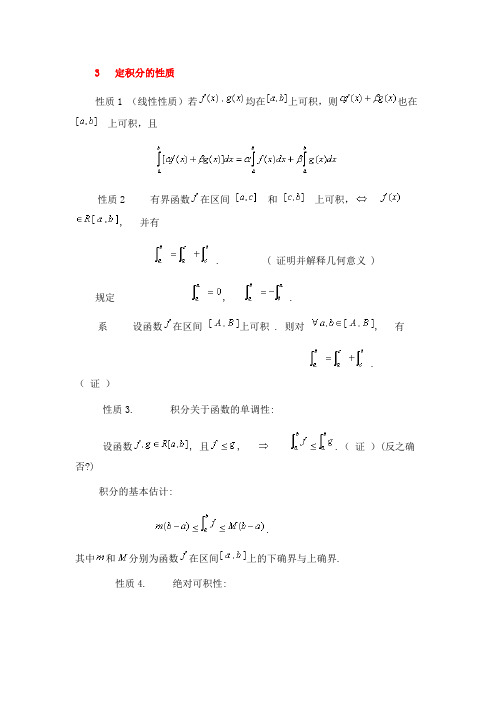 3 定积分的性质
性质1 (线性性质)若 f(x), g(x) 均在 [a,b] 上可积,则 αf(x)+βg(x) 也在
[a,b] 上可积,且
∫_a^b [αf(x)+βg(x)]dx = α∫_a^b f(x)dx + β∫_a^b g(x)dx
性质2 有界函数 f 在区间 [a,c] 和 [c,b] 上可积, ⇔ f(x)
∈R[a,b], 并有
∫_a^b = ∫_a^c + ∫_c^b . ( 证明并解释几何意义 )
规定 ∫_a^a = 0, ∫_a^b = −∫_b^a .
系 设函数 f 在区间 [A,B] 上可积 . 则对 ∀a,b∈[A,B], 有
∫_a^b = ∫_a^c + ∫_c^b .
( 证 )
性质3. 积分关于函数的单调性:
设函数 f,g∈R[a,b], 且 f≤g, ⇒ ∫_a^b f ≤ ∫_a^b g .( 证 )(反之确
否?)
积分的基本估计:
m(b−a) ≤ ∫_a^b f ≤ M(b−a).
其中 m 和 M 分别为函数 f 在区间 [a,b] 上的下确界与上确界.
性质4. 绝对可积性: